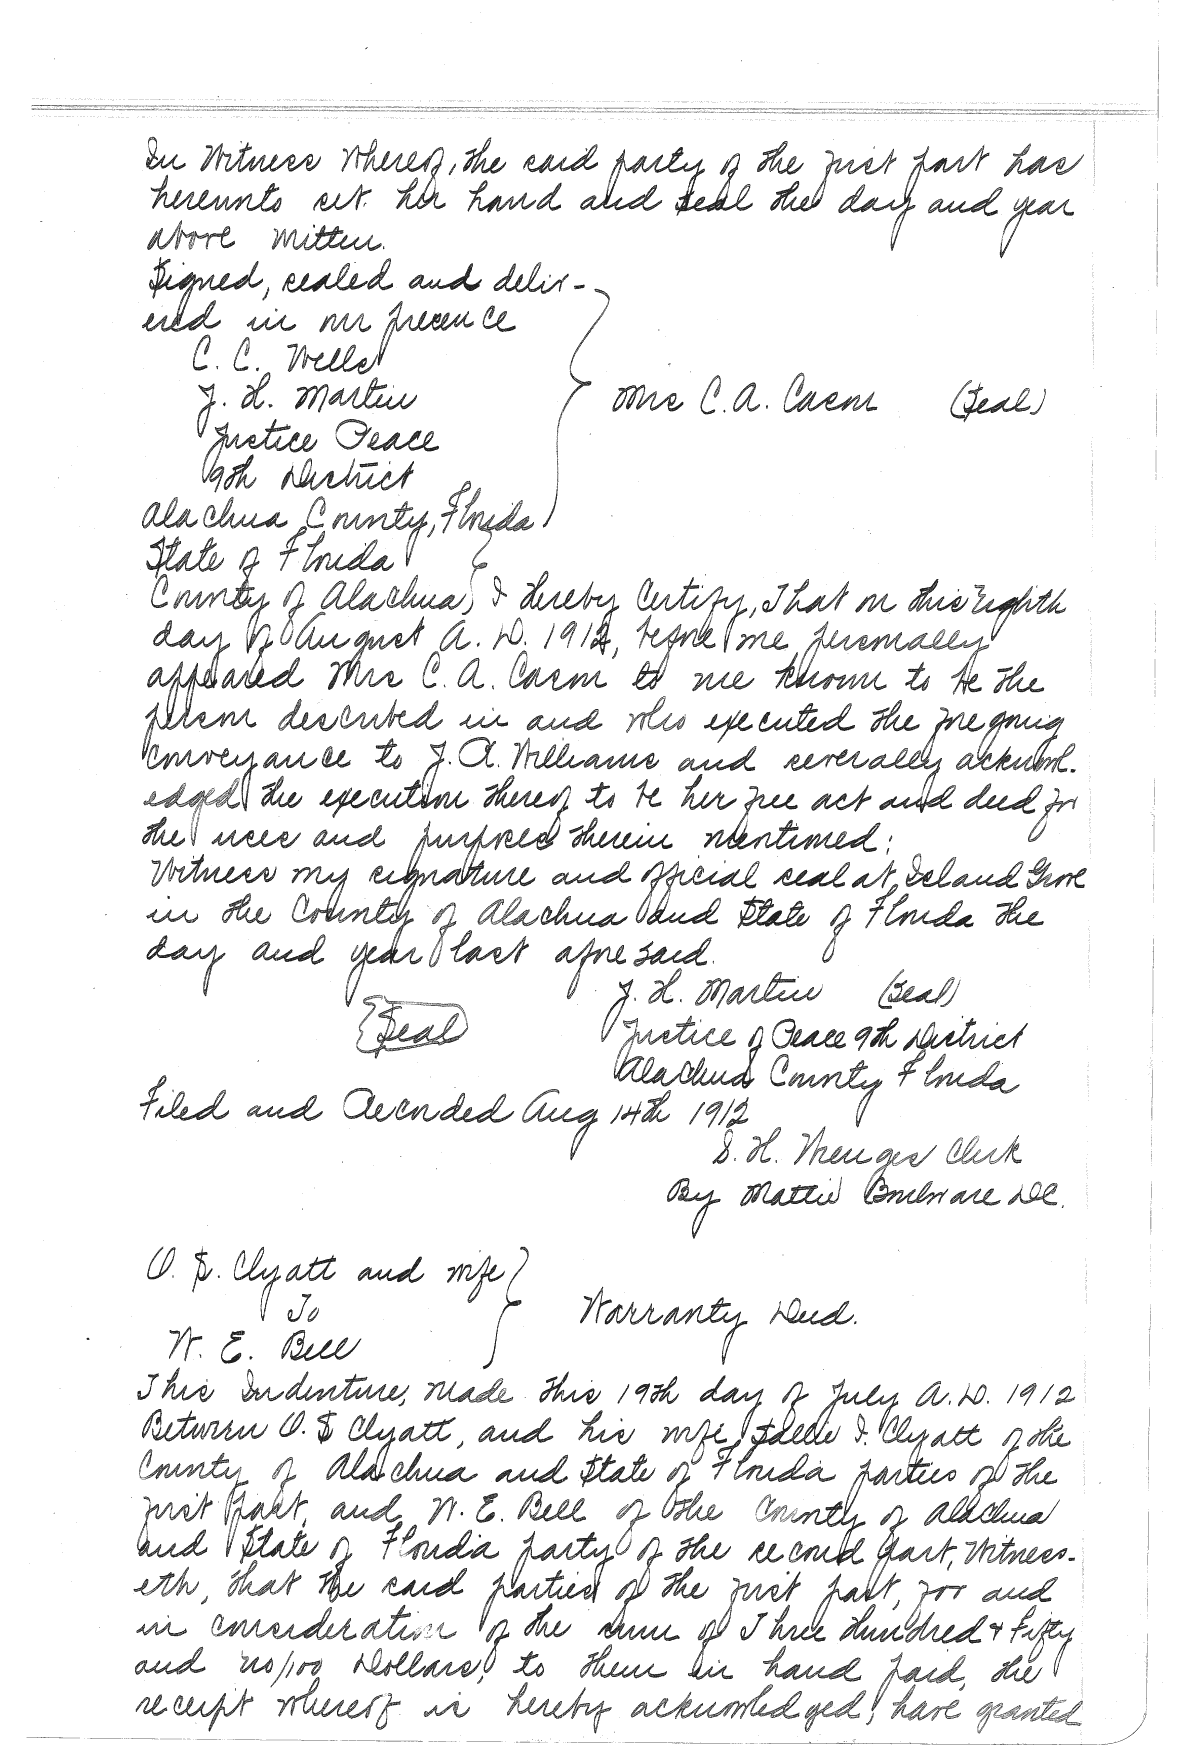 In Witness Whereof, the said party of the first part has
hereunto set her hand and seal the day and year
above written.
Signed, sealed and deliv-
ered in our presence
C. C. Wells
J. H. Martin
Mrs C. A. Cason (Seal)
Justice Peace
9th District
Alachua County, Florida
State of Florida
County of Alachua } I hereby Certify, That on this Eighth
day of August A. D. 1912, before me personally
appeared Mrs C. A. Cason to me known to be the
person described in and who executed the foregoing
conveyance to J. A. Williams and severally acknowl-
edged the execution thereof to be her free act and deed for
the uses and purposes therein mentioned;
Witness my signature and official seal at Island Grove
in the County of Alachua and State of Florida the
day and year last aforesaid.
J. H. Martin (Seal)
{Seal} Justice of Peace 9th District
Alachua County Florida
Filed and Recorded Aug 14th 1912
S. H. Wienges Clerk
By Mattie Boulware DC.
O. S. Clyatt and wife
To
Warranty Deed.
W. E. Bell
This Indenture, Made this 19th day of July A. D. 1912
Between O. S Clyatt, and his wife, Sallie I. Clyatt of the
County of Alachua and State of Florida parties of the
first part, and W. E. Bell of the County of Alachua
and State of Florida party of the second part, Witness-
eth, that the said parties of the first part, for and
in consideration of the sum of Three Hundred & Fifty
and no/100 Dollars, to them in hand paid, the
receipt whereof is hereby acknowledged, have granted